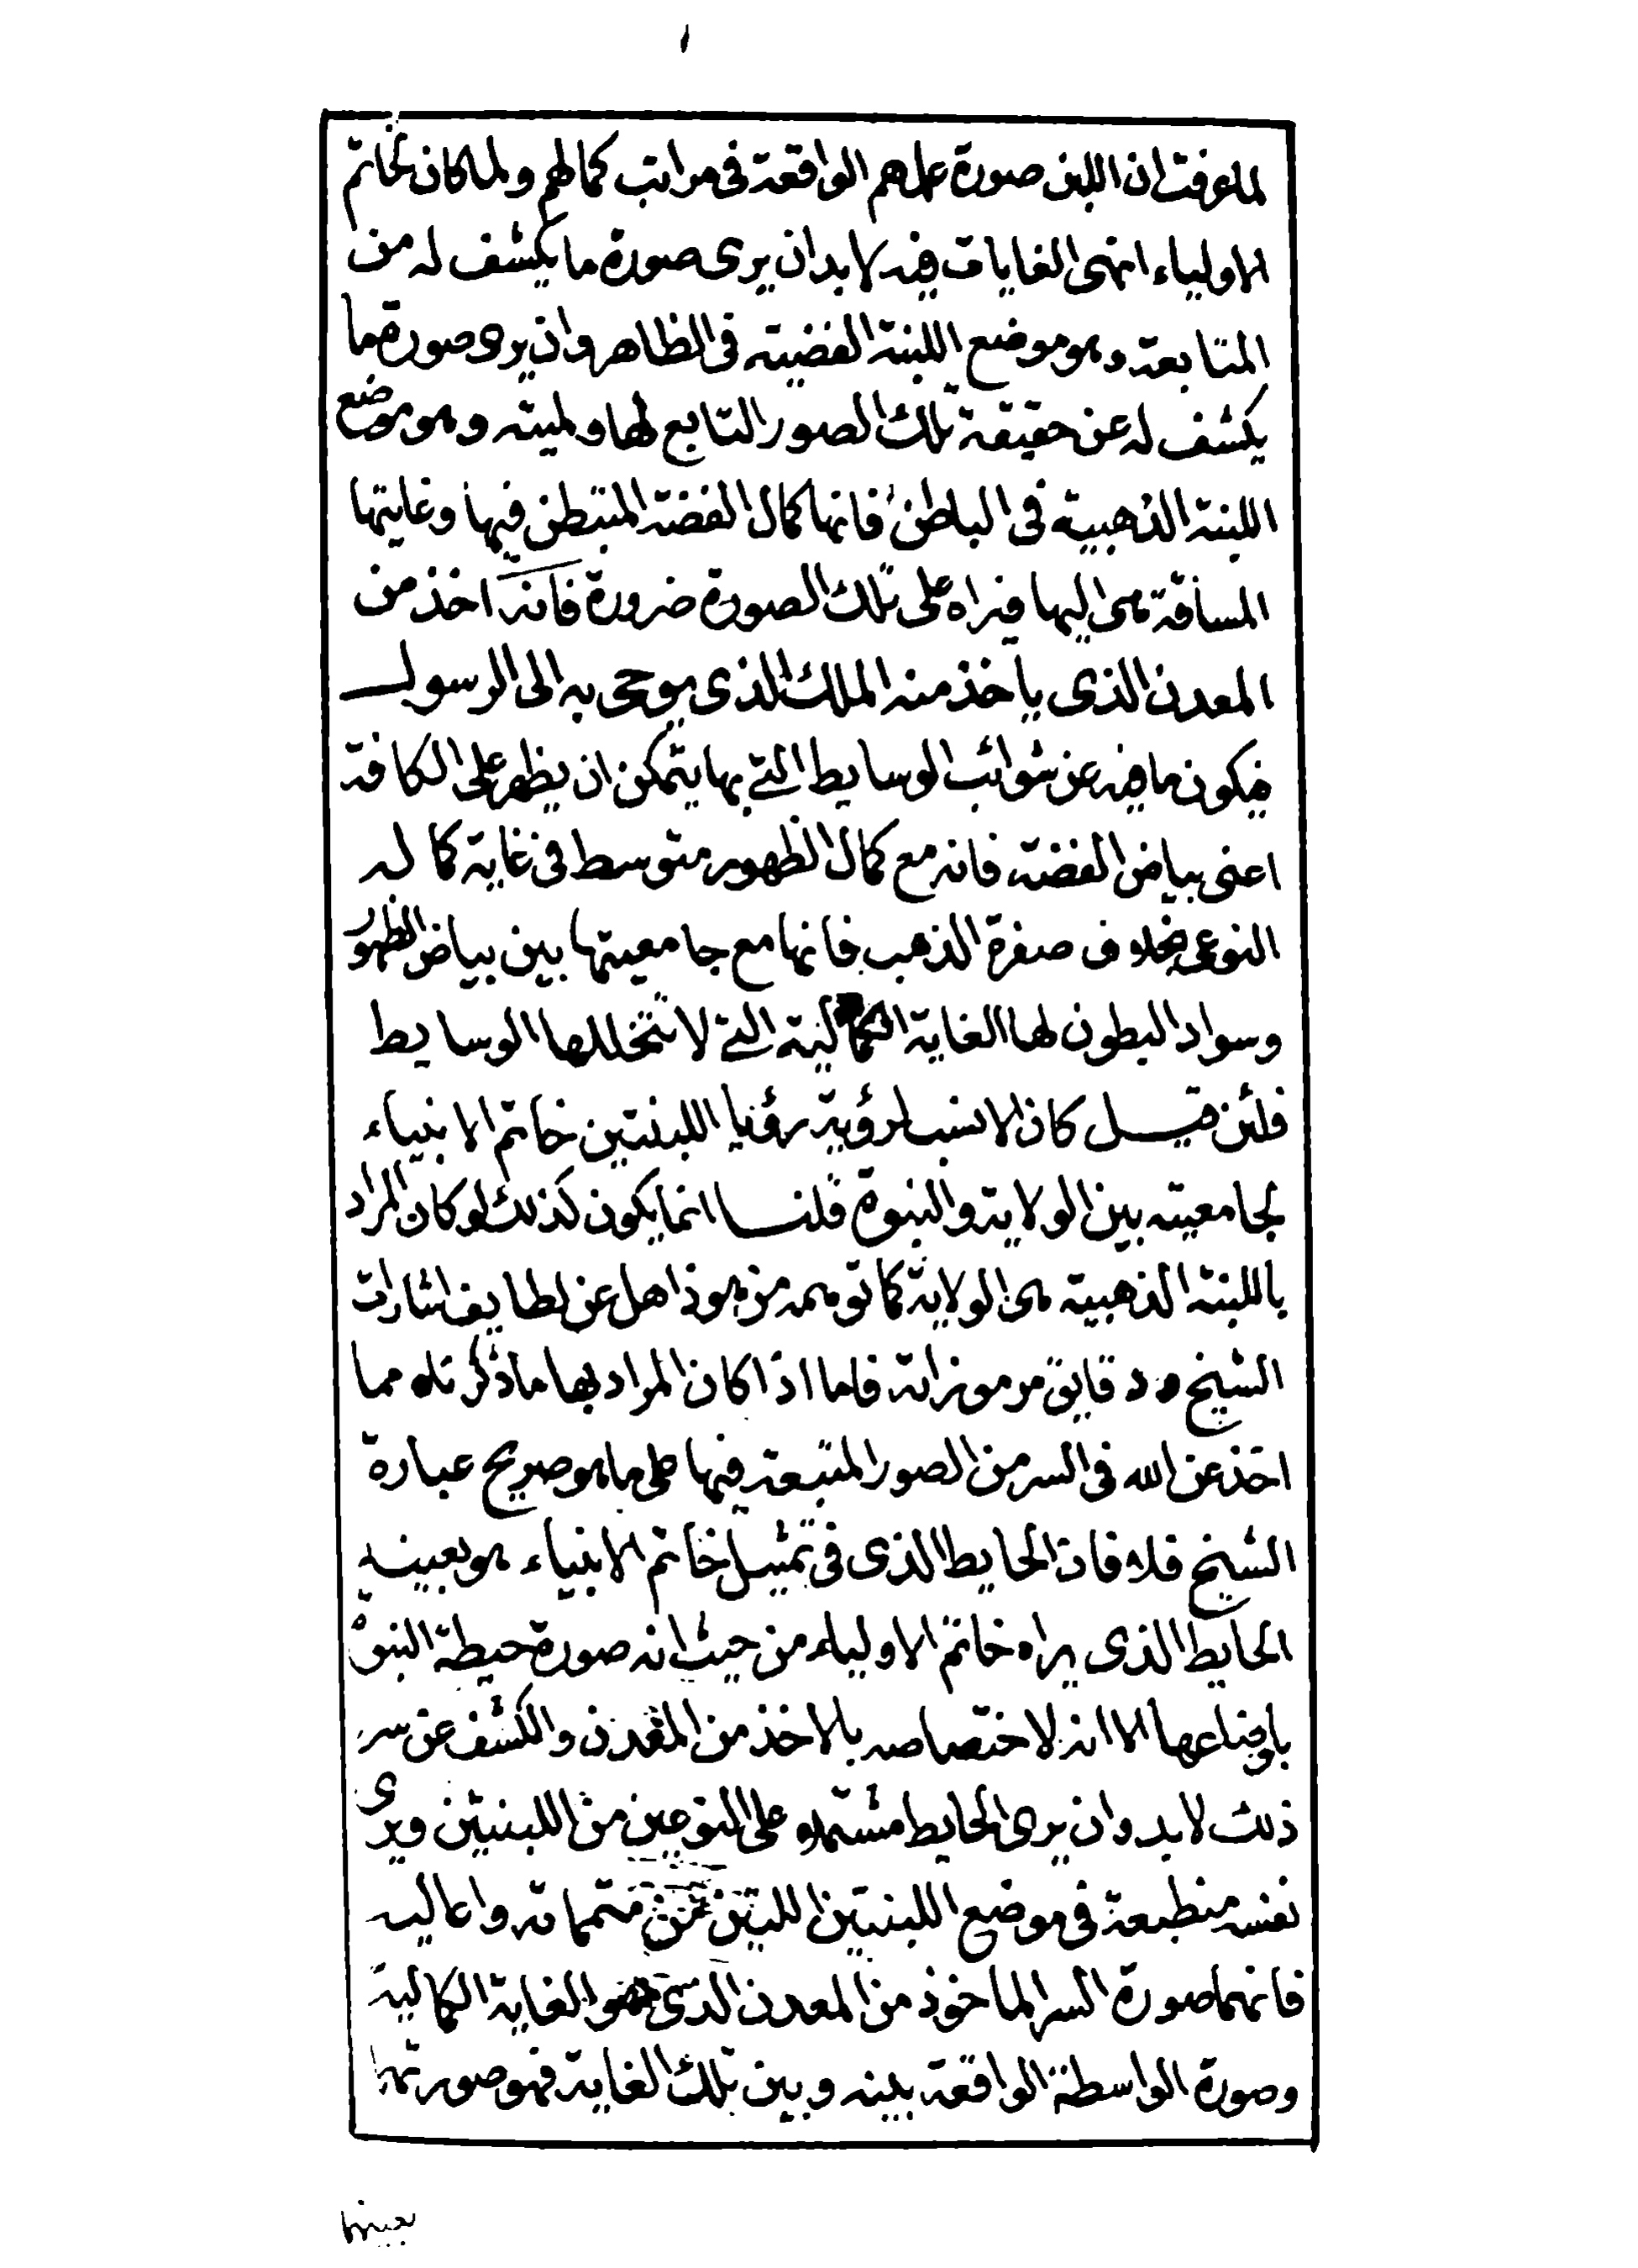 لما عرفت ان اللبن صورة علمهم الواقعة فى مراتب كمالهم ولما كان لخاتم
الاولياء انتهى الغايات فيه لابد ان يرى صورة ما يكشف له من
المتابعة وهو موضع اللبنة الفضية فى الظاهر وان يرى صورة ما
يكشف له عن حقيقة تلك الصور التابع لها ولميته وهو موضع
اللبنة الذهبية فى الباطن فانها كمال الفضة المتبطن فيها وغايتها
المسافة هى اليها فيراه على تلك الصورة ضرورة فانه اخذ من
المعدن الذى ياخذ منه الملك الذى يوحى به الى الرسول
فيكون ما فيه عن شوائب الوسايط التى بها يتمكن ان يظهر على الكافة
اعنى بياض الفضة فانه مع كمال الظهور متوسط فى غاية كماله
النوعى بخلاف صفرة الذهب فانها مع جامعيتها بين بياض الظهور
وسواد البطون لها الغاية الكمالية التى لا تتخللها الوسايط
فلئن قيل كان الانسب لرؤية رؤيا اللبنتين خاتم الانبياء
لجامعيته بين الولاية والنبوة قلنا انما يكون كذلك لو كان المراد
باللبنة الذهبية هى الولاية كما توهمه من هو ذاهل عن لطايف اشارات
الشيخ ودقايق مرموزاته فاما اذا كان المراد بها ما ذكرناه مما
اخذ عن الله فى السر من الصور المتبعة فيها على ما هو صريح عبارة
الشيخ فلا فان الحايط الذى فى تمثيل خاتم الانبياء هو بعينه
الحايط الذى يراه خاتم الاولياء من حيث انه صورة حيطة النبوة
باوضاعها الا انه لاختصاصه بالاخذ من المعدن والكشف عن سر
ذلك لابد وان يرى الحايط مشتملا على النوعين من اللبنتين ويرى
نفسه منطبعة فى موضع اللبنتين اللتين من متمماته واعاليه
فانهما صورة السر الماخوذ من المعدن الذى هو الغاية الكمالية
وصورة الواسطة الواقعة بينه وبين تلك الغاية فهو صورتهما
بعينها